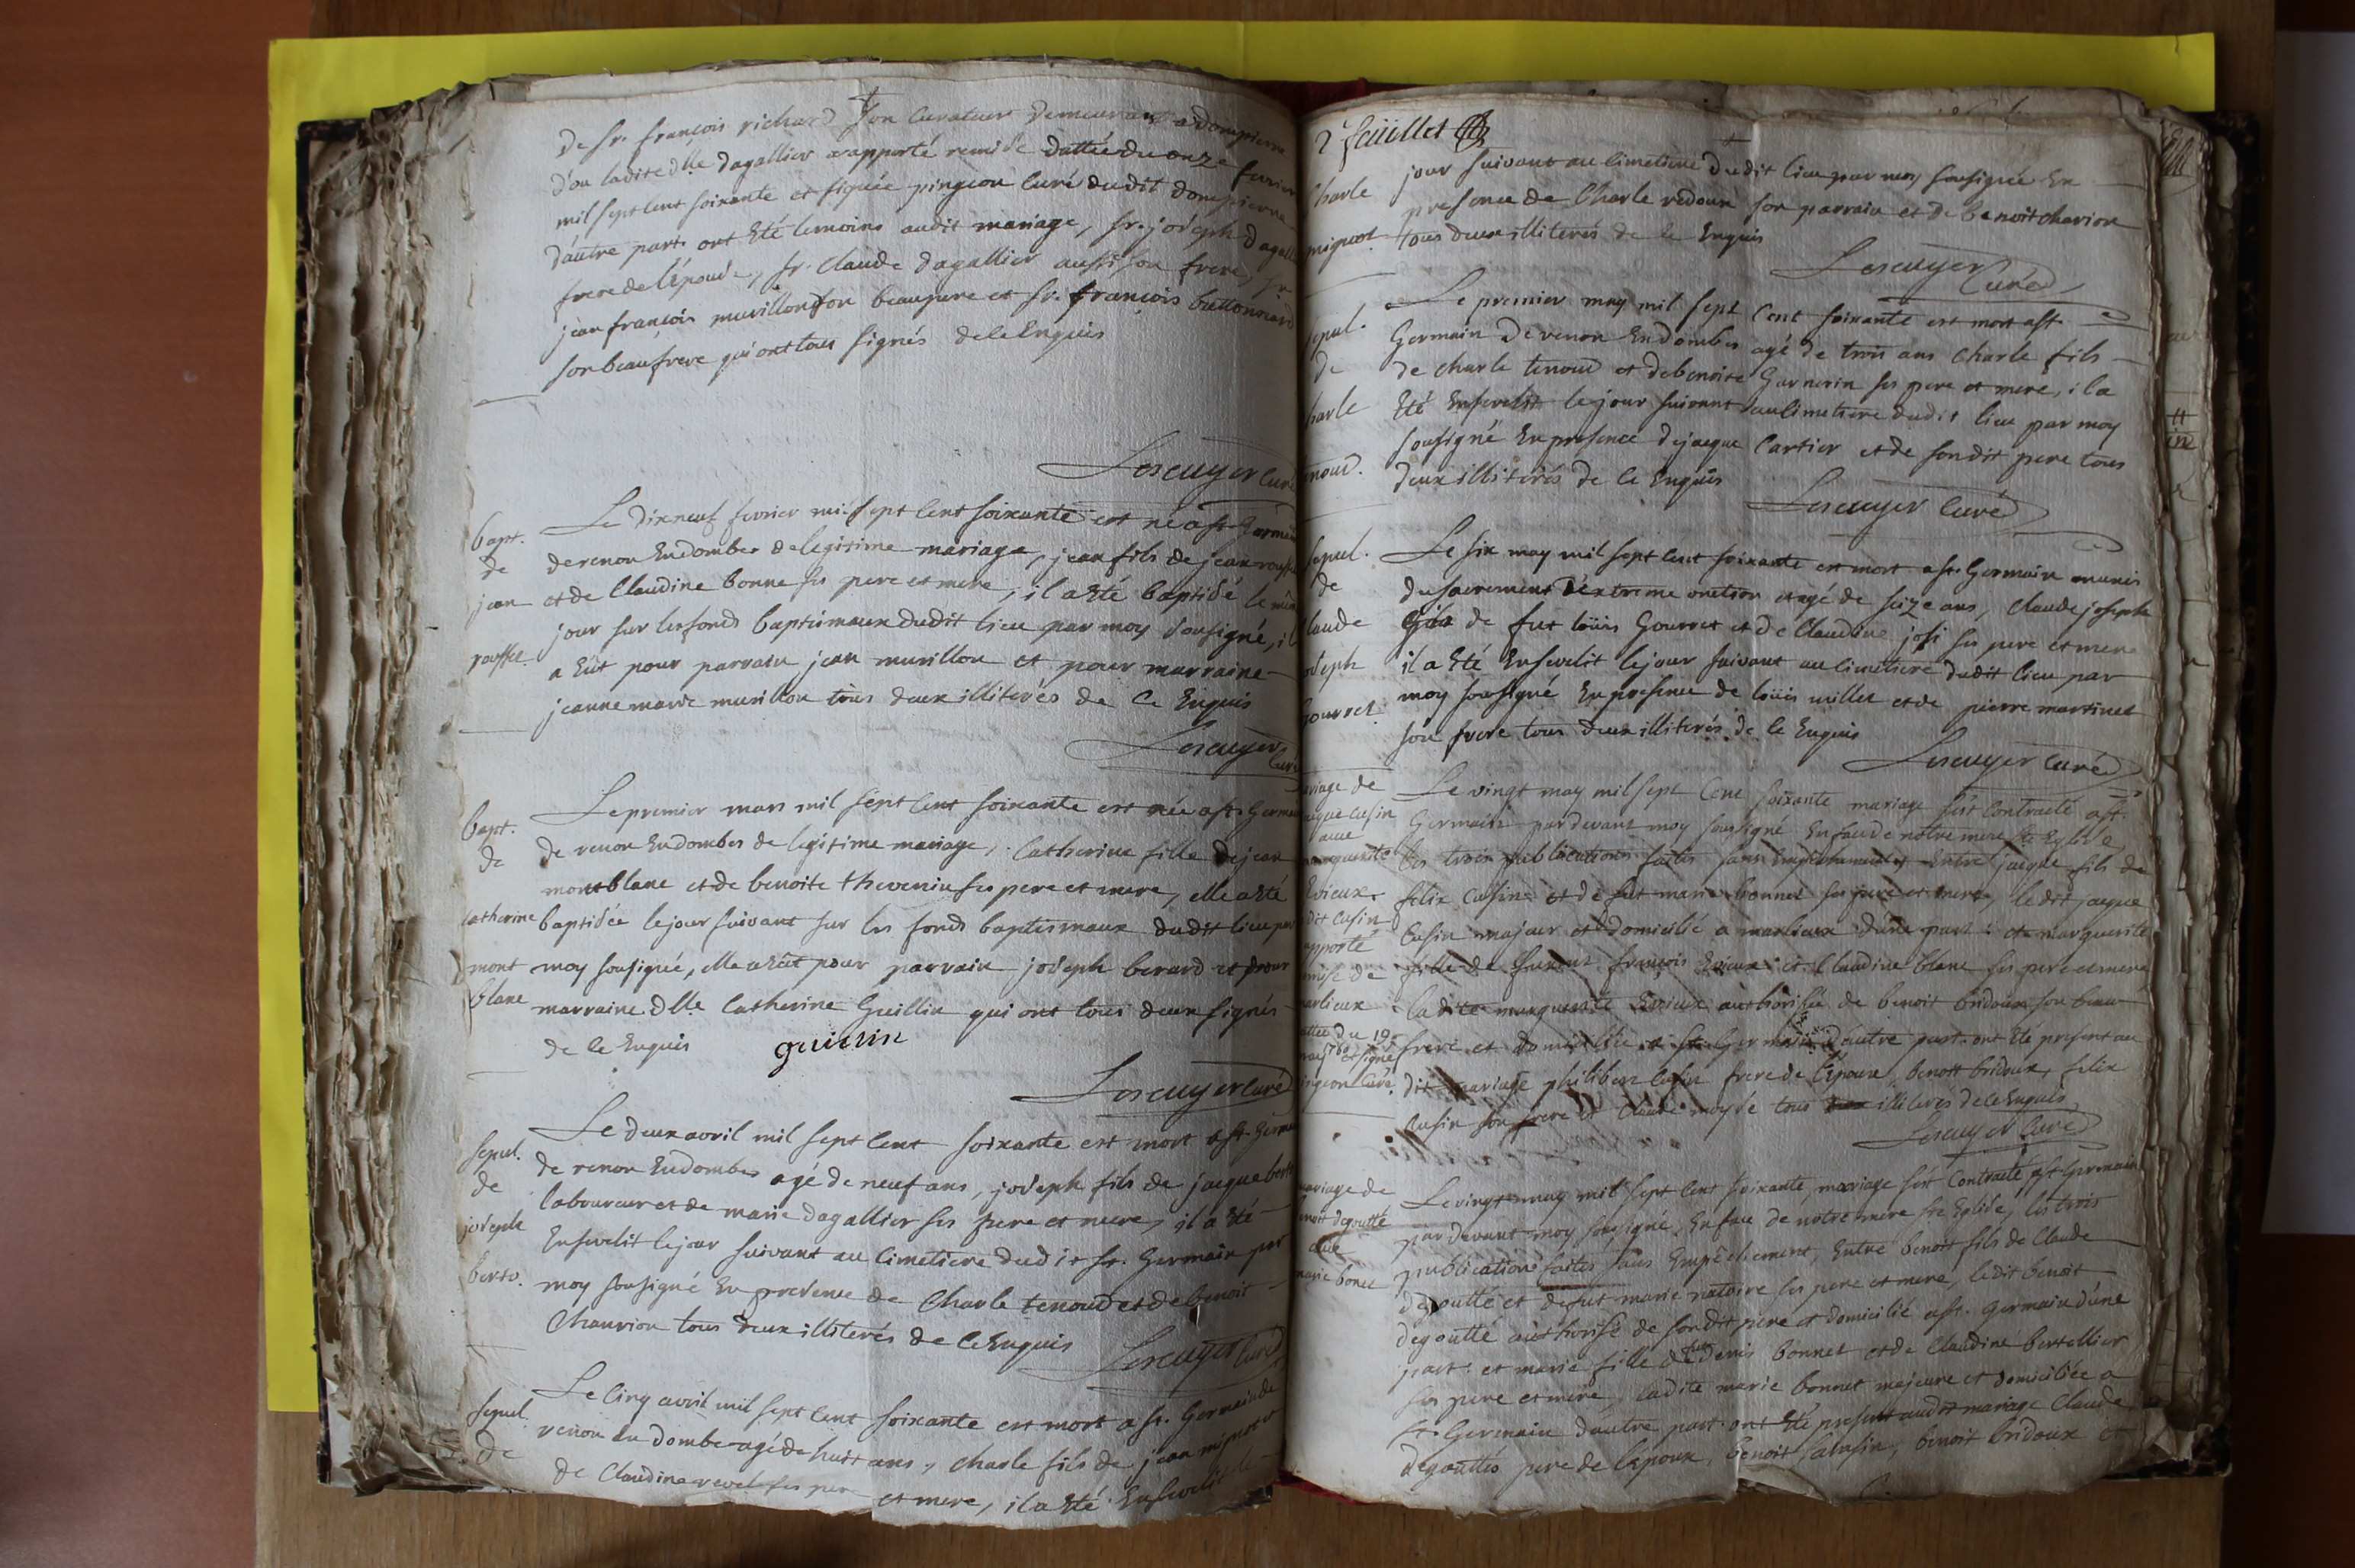 de sr. françois richard son curateur demeurant a dompierre
d'ou ladite dlle dagallier a rapporté remise dattée du onze fevrier
mil sept cent soixante et signée pingeon curé dudit dompierre
d'autre part. ont Eté temoins audit mariage, sr. joseph dagall
frere de l'épouse, sr. Claude dagallier aussi son frere, sr.
jean françois murillon son beaupere et sr. françois buttonnard
son beaufrere qui ont tous signés de ce Enquis
Lescuyer Curé
bapt.
de
jean
rousset
Le dixneuf fevrier mil sept cent soixante est né a st. Germain
de renon Endombes de legitime mariage, jean fils de jean rousse
et de Claudine bonne ses pere et mere, il a Eté baptisé le mem
jour sur les fonds baptismaux dudit lieu par moy sousigné, il
a Eüt pour parrain jean murillon et pour marraine
jeanne marie murillon tous deux illiterés de ce Enquis
Lescuyer Curé
bapt.
de
catherine
mont
blanc
Le premier mars mil sept cent soixante est née a st. Germain
de renon Endombes de legitime mariage, Catherine fille de jean
montblanc et de benoite thevenin ses pere et mere, elle a Eté
baptisée le jour suivant sur les fonds baptismaux dudit lieu par
moy sousigné, elle a Eüt pour parrain joseph berard et pour
marraine dlle Catherine Guillin qui ont tous deux signés
de ce Enquis
guillin
Lescuyer Curé
sepul.
de
joseph
berto.
Le deux avril mil sept cent soixante est mort a st. Germain
de renon Endombes agé de neuf ans, joseph fils de jacque berto
laboureur et de marie dagallier ses pere et mere, il a Eté
Ensevelit le jour suivant au Cimetiere dudit st. Germain par
moy sousigné En presence de Charle tenoud et de benoit
Chanrion tous deux illiterés de ce Enquis
Lescuyer Curé
sepul.
de
Le Cinq avril mil sept cent soixante est mort a st. Germain de
renon En dombe agé de huit ans, Charle fils de jean mignot et
de Claudine revel ses pere et mere, il a Eté Ensevelit le
2 feüillet
Charle
mignot
jour suivant au Cimetiere dudit lieu par moy sousigné En
presence de Charle redoux son parrain et de benoit charion
tous deux illiterés de ce Enquis
Lescuyer
Curé
sepul.
de
harle
enoud.
Le premier may mil sept Cent soixante est mort a st.
Germain de renon Endombes agé de trois ans Charle fils
de Charle tenoud et de benoite Garnerin ses pere et mere, il a
Eté Ensevelit le jour suivant au Cimetiere dudit lieu par moy
sousigné En presence de jacque Cartier et de son dit pere tous
deux illiterés de ce Enquis
Lescuyer Curé
sepul.
de
laude
oseph
Gourret
Le six may mil sept cent soixante est mort a st. Germain munis
du sacrement d'extreme onction et agé de seize ans, Claude joseph
fils de fut loüis Gourret et de Claudine josi ses pere et mere
il a Eté Ensevelit le jour suivant au Cimetiere dudit lieu par
moy sousigné En presence de loüis millet et de pierre martinet
son frere tous deux illiterés de ce Enquis
Lescuyer Curé
ariage de
acque Cusin
avec
marguerite
Evieux
dit Cusin
apporté
emise de
marlieux
attée du 19
may 1760 et signé
ingeon Curé.
Le vingt may mil sept Cent soixante mariage fut Contracté a st.
Germain par devant moy sousigné En face de notre mere ste Eglise
les trois publications faites sans Empechements, Entre jacque fils de
felix Cusin et de fut marie bonnet ses pere et mere, le dit jacque
Cusin majeur et domicilié a marlieux d'une part. et marguerite
fille de furent françois Evieux et Claudine blanc ses pere et mere
la dite marguerite Evieux authorisée de benoit bridoux son beau
frere et domiciliée a st. Germain d'autre part. ont Eté present au
dit mariage philibert Cusin frere de l'époux, benoit bridoux, felix
Cusin son frere et Claude moyse tous illiterés de ce Enquis
Lescuyer Curé
mariage de
enoit degoutté
avec
marie bonet
Le vingt may mil sept cent soixante, mariage fut Contracté a st. Germain
par devant moy sousigné, En face de notre mere ste Eglise, les trois
publications faites sans Empêchement, Entre benoit fils de Claude
degoutté et de fut marie natoire ses pere et mere, le dit benoit
degoutté authorisé de son dit pere et domicilié a st. Germain d'une
part. et marie fille de fut denis bonnet et de Claudine bertellier
ses pere et mere, ladite marie bonnet majeure et domiciliée a
st. Germain d'autre part. ont Eté present audit mariage Claude
degouttés pere de l'époux, benoit bridoux et